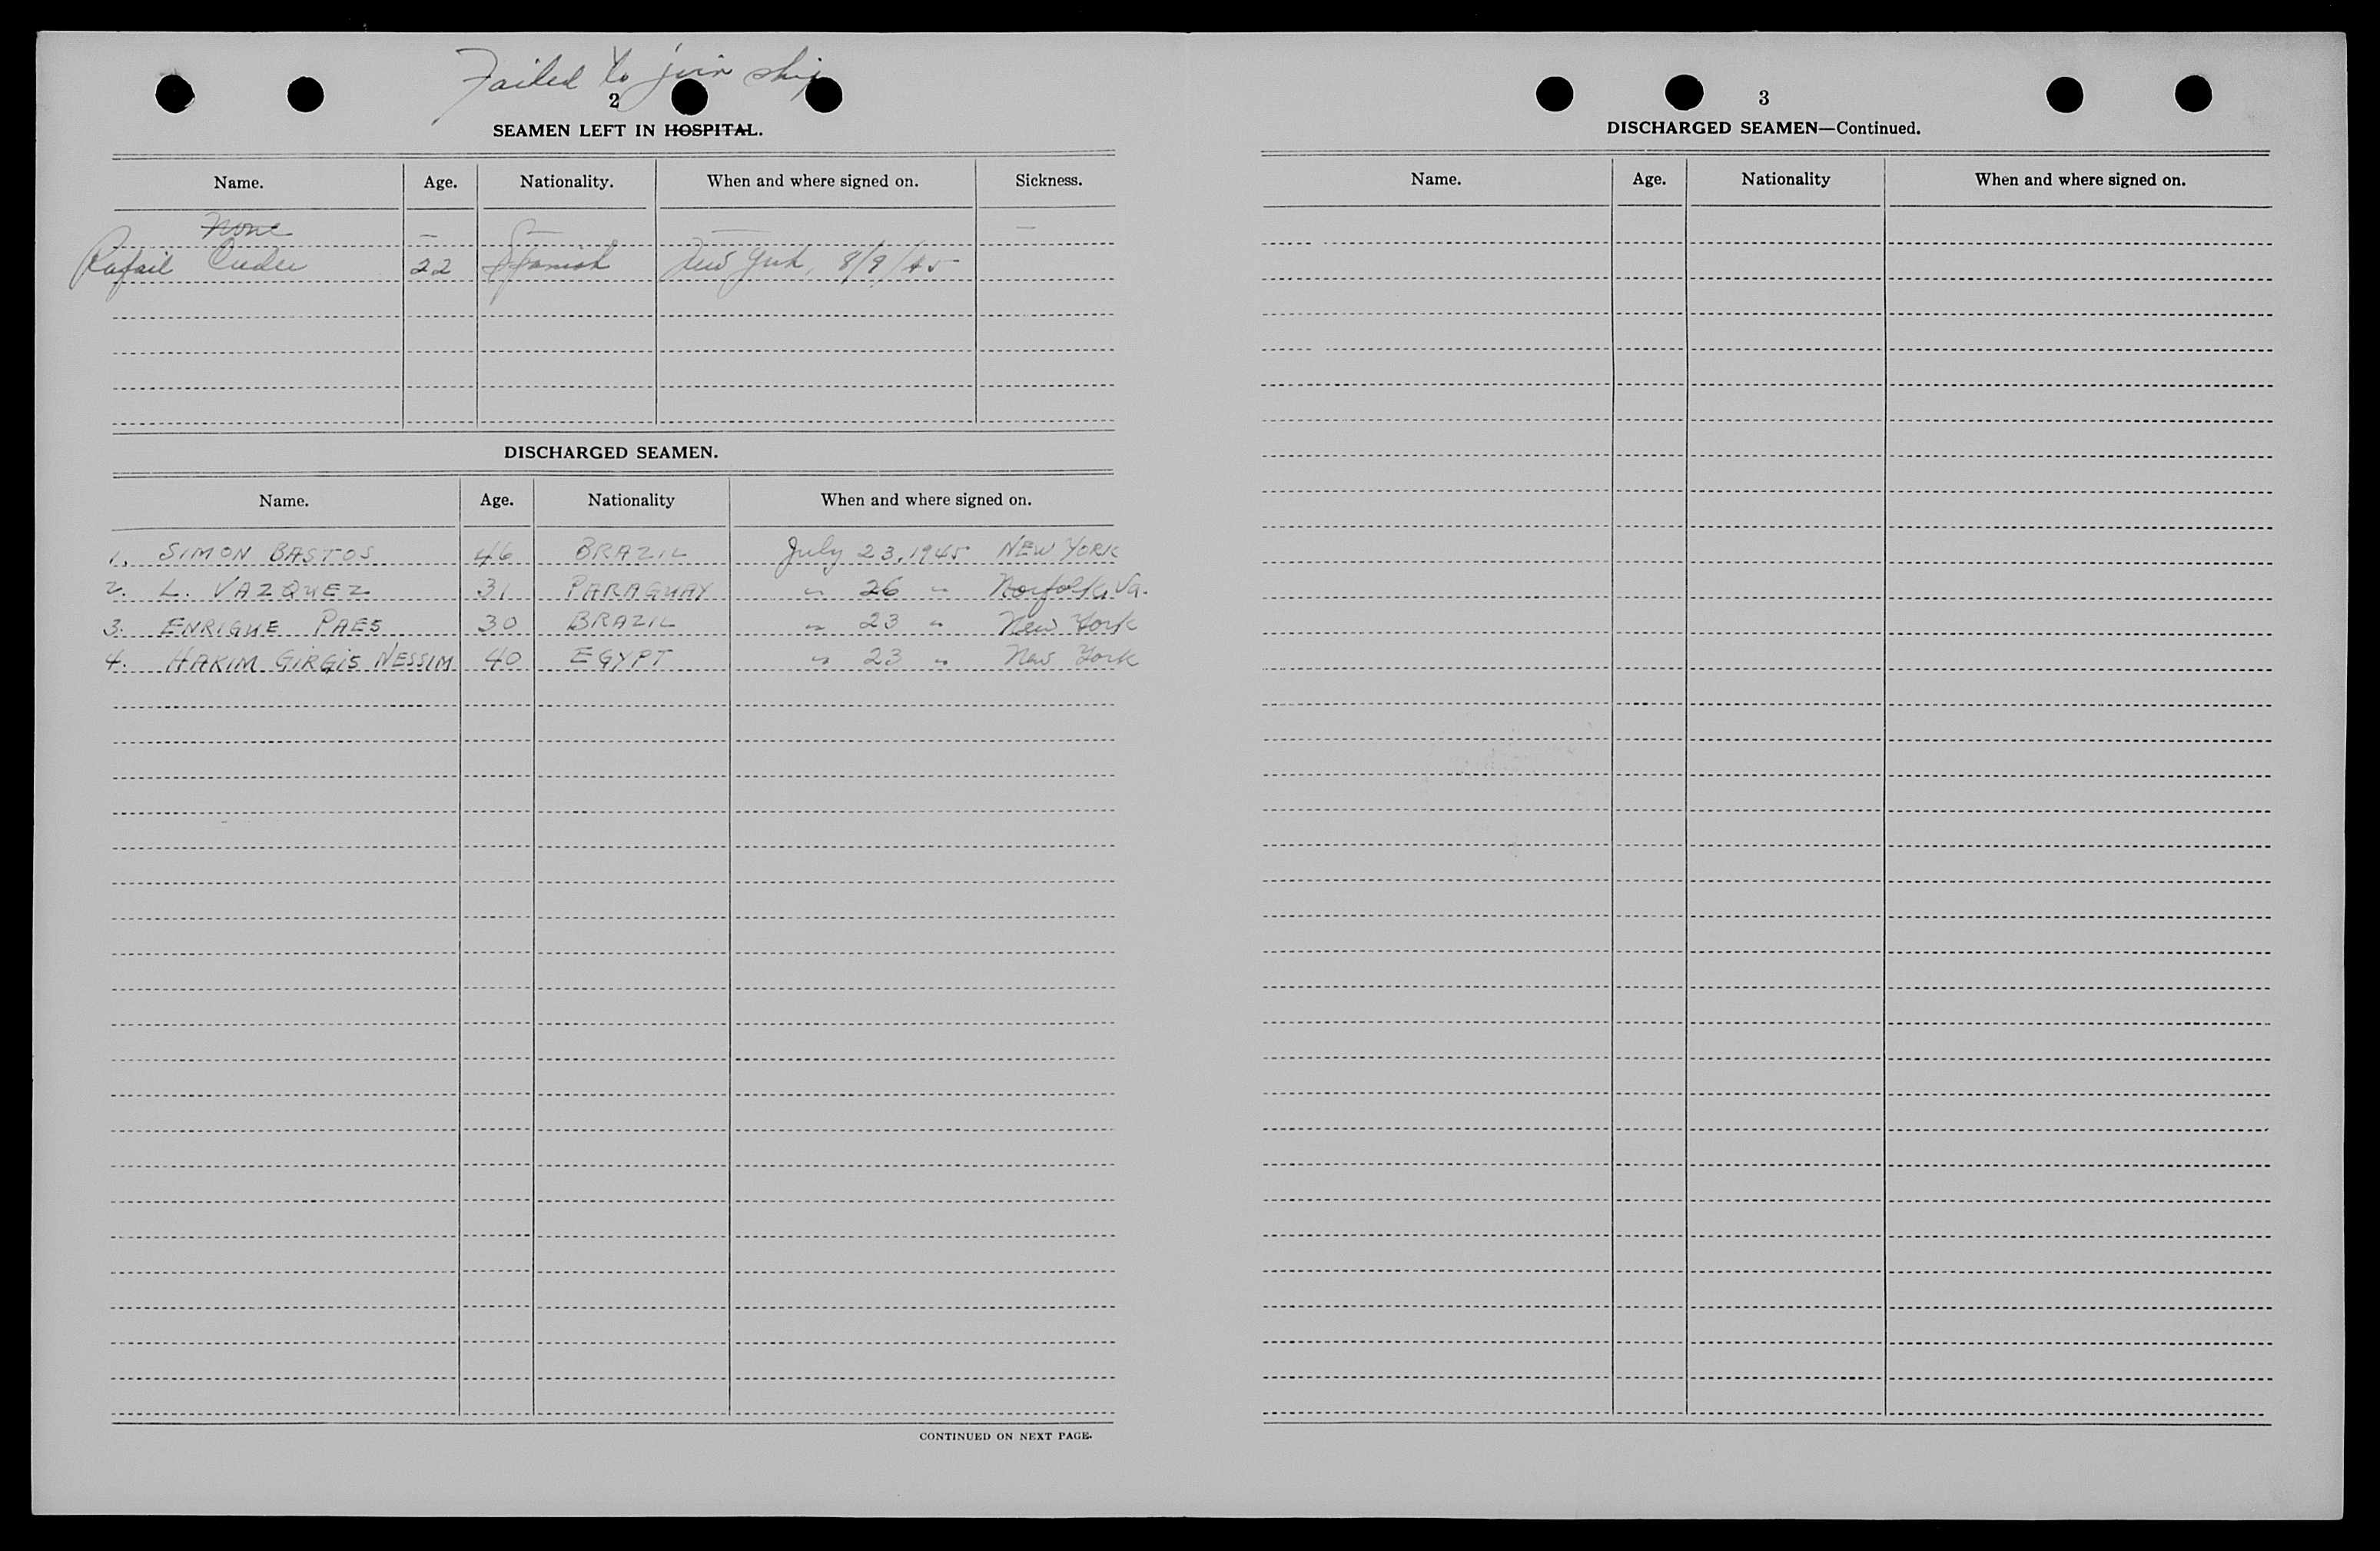 Failed to join ship
2
SEAMEN LEFT IN HOSPITAL.
Name. Age. Nationality. When and where signed on. Sickness.
None — — — —
Rafail 22 Spanish New York, 8/9/45
DISCHARGED SEAMEN.
Name. Age. Nationality When and where signed on.
1. SIMON BASTOS 46 BRAZIL July 23, 1945 NEW YORK
2. L. VAZQUEZ 31 PARAGUAY " 26 " Norfolk, Va.
3. ENRIQUE PAES 30 BRAZIL " 23 " New York
4. HAKIM GIRGIS NESSIM 40 EGYPT " 23 " New York
CONTINUED ON NEXT PAGE.
3
DISCHARGED SEAMEN—Continued.
Name. Age. Nationality When and where signed on.